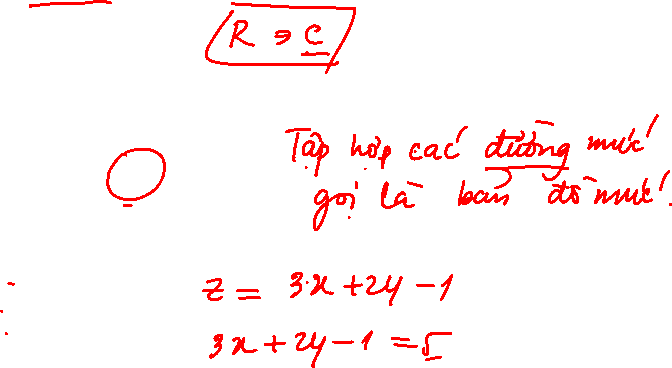 R ⇒ C
Tập hợp các đường mức
gọi là bản đồ mức.
z = 3x + 2y - 1
3x + 2y - 1 = 5